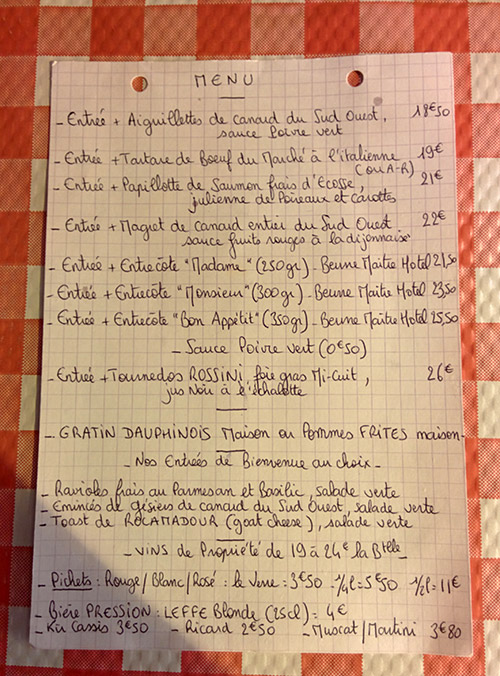 MENU
- Entrée + Aiguillettes de canard du Sud Ouest, 18€50
sauce Poivre vert
- Entrée + Tartare de Boeuf du Marché à l'italienne 19€
(ou A-R)
- Entrée + Papillotte de Saumon frais d'Ecosse, 21€
julienne de Poireaux et carottes
- Entrée + Magret de canard entier du Sud Ouest 22€
sauce fruits rouges à la dijonnaise
- Entrée + Entrecôte "Madame" (250gr) - Beurre Maître Hotel 21,50
- Entrée + Entrecôte "Monsieur" (300gr) - Beurre Maître Hotel 23,50
- Entrée + Entrecôte "Bon Appétit" (350gr) - Beurre Maître Hotel 25,50
- Sauce Poivre vert (0€50)
- Entrée + Tournedos ROSSINI foie gras Mi-Cuit, 26€
jus Noir à l'échalotte
- GRATIN DAUPHINOIS Maison ou Pommes FRITES maison -
- Nos Entrées de Bienvenue au choix -
- Ravioles frais au Parmesan et Basilic, salade verte
- Emincés de gésiers de canard du Sud Ouest, salade verte
- Toast de ROCAMADOUR (goat cheese), salade verte
- VINS de Propriété de 19 à 24€ la Btelle
- Pichets : Rouge/Blanc/Rosé : le Verre = 3€50 1/4l = 5€50 1/2l = 11€
- Bière PRESSION : LEFFE Blonde (25cl) = 4€
- Kir Cassis 3€50 - Ricard 2€50 - Muscat/Martini 3€80